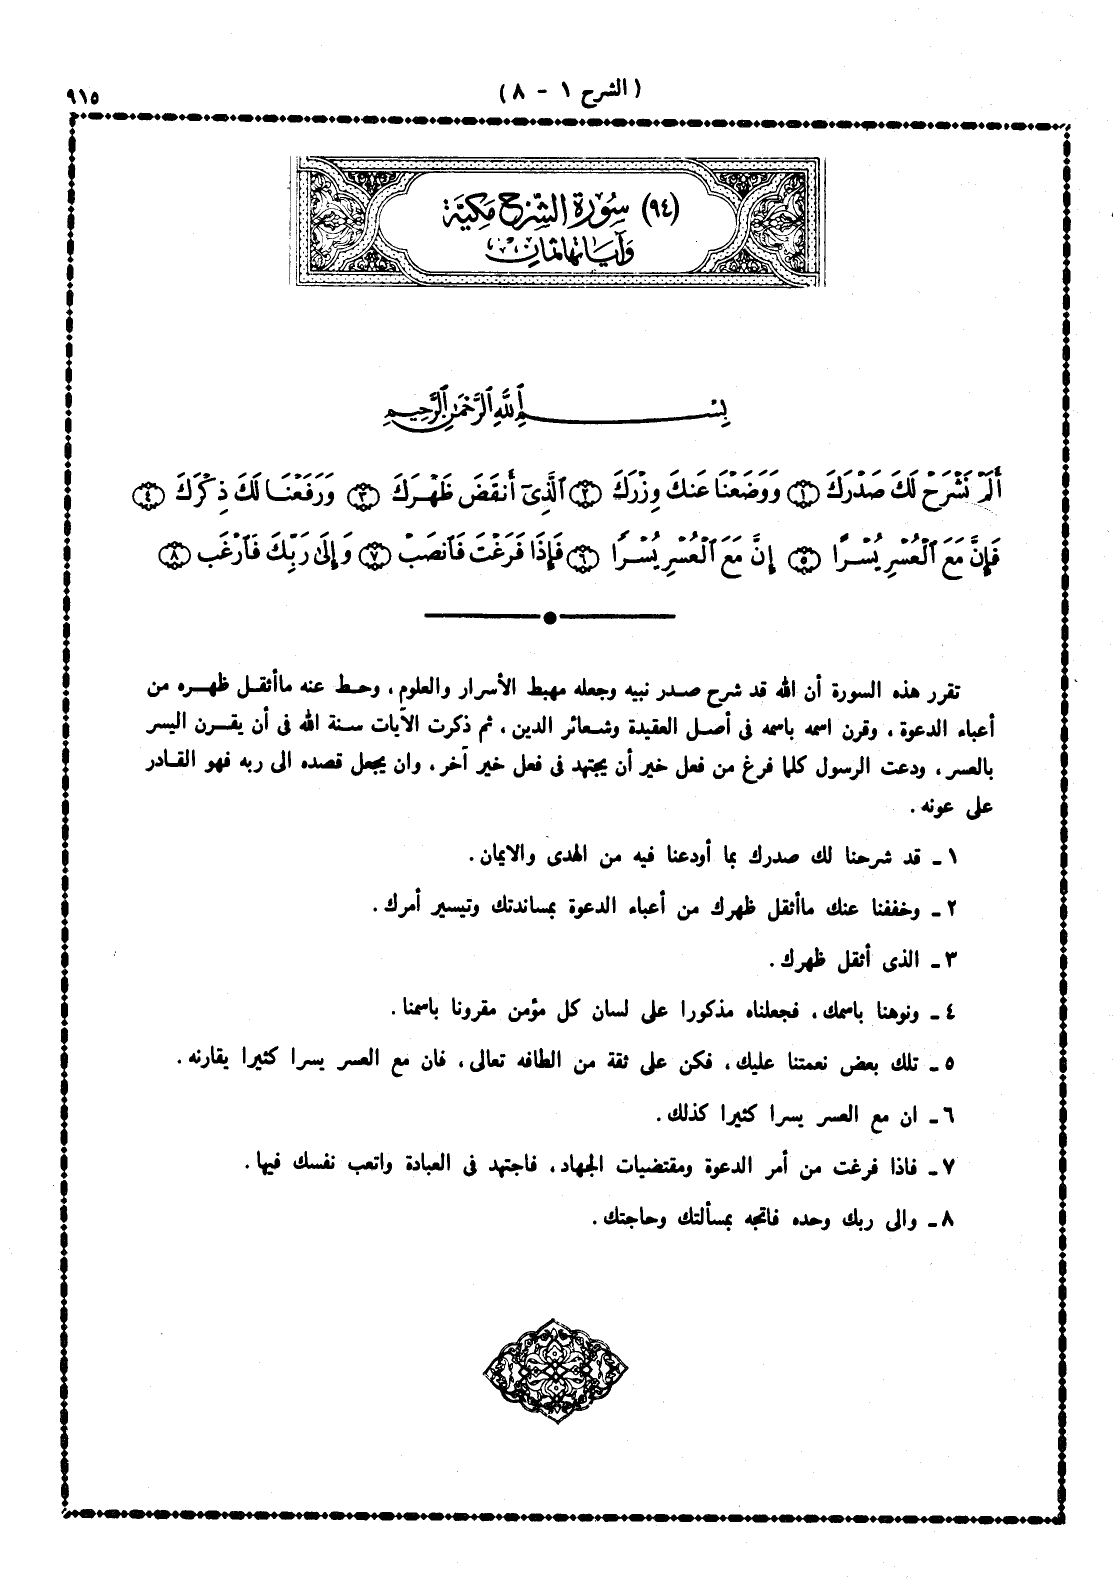 ٩١٥
( الشرح ١ - ٨ )
(٩٤) سورة الشرح مكية
وآياتها ثمان
بِسْمِ ٱللَّهِ ٱلرَّحْمَٰنِ ٱلرَّحِيمِ
أَلَمْ نَشْرَحْ لَكَ صَدْرَكَ ١ وَوَضَعْنَا عَنكَ وِزْرَكَ ٢ ٱلَّذِىٓ أَنقَضَ ظَهْرَكَ ٣ وَرَفَعْنَا لَكَ ذِكْرَكَ ٤
فَإِنَّ مَعَ ٱلْعُسْرِ يُسْرًا ٥ إِنَّ مَعَ ٱلْعُسْرِ يُسْرًا ٦ فَإِذَا فَرَغْتَ فَٱنصَبْ ٧ وَإِلَىٰ رَبِّكَ فَٱرْغَب ٨
تقرر هذه السورة أن الله قد شرح صدر نبيه وجعله مهبط الأسرار والعلوم ، وحط عنه ماأثقل ظهره من
أعباء الدعوة ، وقرن اسمه باسمه فى أصل العقيدة وشعائر الدين ، ثم ذكرت الآيات سنة الله فى أن يقرن اليسر
بالعسر ، ودعت الرسول كلما فرغ من فعل خير أن يجتهد فى فعل خير آخر ، وان يجعل قصده الى ربه فهو القادر
على عونه .
١ ـ قد شرحنا لك صدرك بما أودعنا فيه من الهدى والايمان .
٢ ـ وخففنا عنك ماأثقل ظهرك من أعباء الدعوة بمساندتك وتيسير أمرك .
٣ ـ الذى أثقل ظهرك .
٤ ـ ونوهنا باسمك ، فجعلناه مذكورا على لسان كل مؤمن مقرونا باسمنا .
٥ ـ تلك بعض نعمتنا عليك ، فكن على ثقة من الطافه تعالى ، فان مع العسر يسرا كثيرا يقارنه .
٦ ـ ان مع العسر يسرا كثيرا كذلك .
٧ ـ فاذا فرغت من أمر الدعوة ومقتضيات الجهاد ، فاجتهد فى العبادة واتعب نفسك فيها .
٨ ـ والى ربك وحده فاتجه بمسألتك وحاجتك .